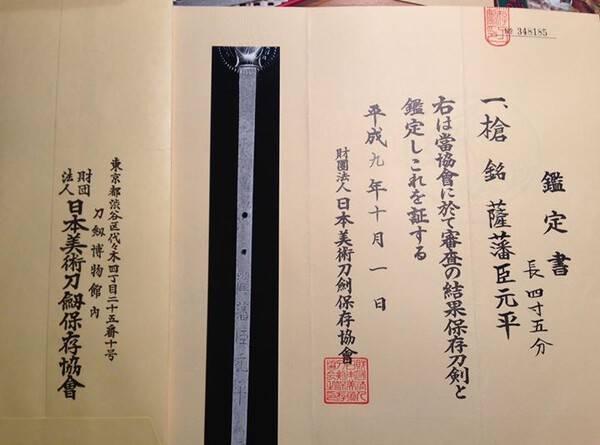 No 348185
鑑定書
一、槍 銘 薩藩臣元平
長四寸五分
右は當協會に於て審査の結果保存刀剣と
鑑定しこれを証する
平成九年十月一日
財團法人 日本美術刀剣保存協會
薩藩臣元平
東京都渋谷区代々木四丁目二十五番十号
刀剱博物館内
財団法人 日本美術刀劔保存協會